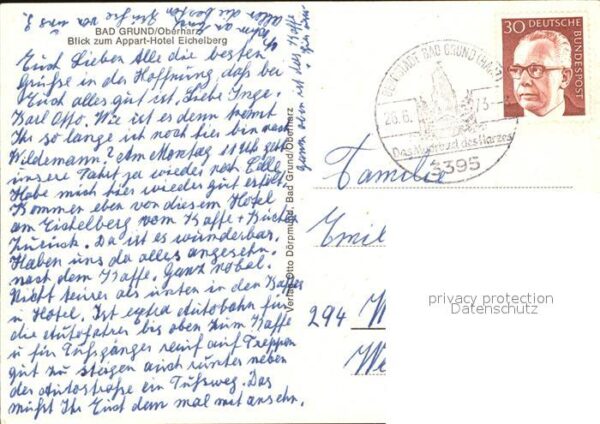 BAD GRUND/Oberharz
Blick zum Appart-Hotel Eichelberg
Euch Lieben Alle die besten
Grüße in der Hoffnung daß bei
Euch alles gut ist. Liebe Inge,
Karl Otto. Wie ist es denn kommt
Ihr so lange ich noch hier bin nach
Wildemann? Am Montag 11 Uhr geht
unsere Fahrt ja wieder nach Celle
Habe mich hier wieder gut erholt
Kommen eben von diesem Hotel
am Eichelberg vom Kaffe + Kuchen
zurück. Da ist es wunderbar.
Haben uns da alles angesehn.
nach dem Kaffe. Ganz nobel.
Nicht teurer als unten in den Kaffes
u Hotel. Ist extra Autobahn für
die Autofahrer bis oben zum Kaffe
u für Fußgänger rauf auf Treppen
gut zu steigen auch runter neben
der Autostraße ein Fußweg. Das
müßt Ihr Euch dann mal mit ansehn.
ganz oben ist das Kaffe
Verlag Otto Dörpmund, Bad Grund/Oberharz
BAD GRUND (HARZ)
Das Moorbad des Harzes
3395
30
DEUTSCHE
BUNDESPOST
Familie
Emil
294
privacy protection
Datenschutz